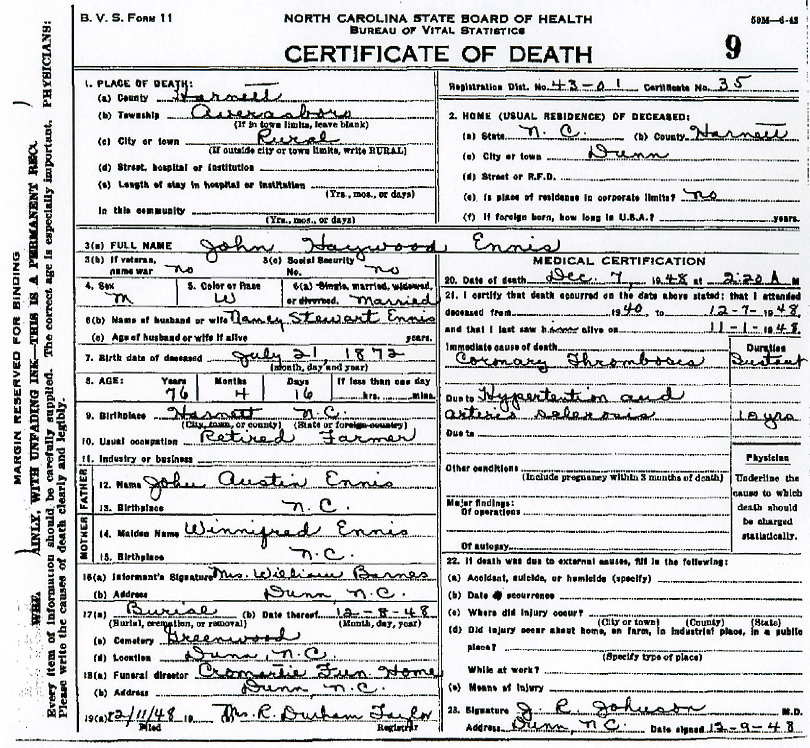 B. V. S. FORM 11
NORTH CAROLINA STATE BOARD OF HEALTH
BUREAU OF VITAL STATISTICS
50M—6-43
CERTIFICATE OF DEATH
9
1. PLACE OF DEATH:
(a) County Harnett
(b) Township Averasboro
(If in town limits, leave blank)
(c) City or town Rural
(If outside city or town limits, write RURAL)
(d) Street, hospital or institution
(e) Length of stay in hospital or institution
(Yrs., mos., or days)
In this community
(Yrs., mos. or days)
Registration Dist. No. 43-01 Certificate No. 35
2. HOME (USUAL RESIDENCE) OF DECEASED:
(a) State N. C. (b) County Harnett
(c) City or town Dunn
(d) Street or R.F.D.
(e) Is place of residence in corporate limits? no
(f) If foreign born, how long in U.S.A.? years.
3(a) FULL NAME John Haywood Ennis
3(b) If veteran, name war no
3(c) Social Security No. no
4. Sex M
5. Color or Race W
6(a) Single, married, widowed, or divorced. Married
6(b) Name of husband or wife Nancy Stewart Ennis
6(c) Age of husband or wife if alive years.
7. Birth date of deceased July 21, 1872
(month, day and year)
8. AGE: Years Months Days If less than one day
76 4 16 hrs. mins.
9. Birthplace Harnett N.C.
(City, town, or county) (State or foreign country)
10. Usual occupation Retired Farmer
11. Industry or business
FATHER
12. Name John Austin Ennis
13. Birthplace N.C.
MOTHER
14. Maiden Name Winnifred Ennis
15. Birthplace N.C.
16(a) Informant's Signature Mrs. William Barnes
(b) Address Dunn, N.C.
17(a) Burial (b) Date thereof 12-8-48
(Burial, cremation, or removal) (Month, day, year)
(c) Cemetery Greenwood
(d) Location Dunn N.C.
18(a) Funeral director Cromartie Fun Home
(b) Address Dunn, N.C.
19(a) 12/11/48 19 Ms. R. Durham Taylor
Filed Registrar
MEDICAL CERTIFICATION
20. Date of death Dec. 7, 1948 at 2:20 A M
21. I certify that death occurred on the date above stated; that I attended
deceased from 1940, to 12-7-1948,
and that I last saw h alive on 11-1-1948
Immediate cause of death Duration
Coronary Thrombosis Instant
Due to Hypertention and
arterio sclerosis 10 yrs
Due to
Other conditions
(Include pregnancy within 3 months of death)
Major findings:
Of operations
Of autopsy
Physician
Underline the
cause to which
death should
be charged
statistically.
22. If death was due to external causes, fill in the following:
(a) Accident, suicide, or homicide (specify)
(b) Date of occurrence
(c) Where did injury occur?
(City or town) (County) (State)
(d) Did injury occur about home, on farm, in industrial place, in a public
place?
(Specify type of place)
While at work?
(e) Means of injury
23. Signature J. R. Johnson M.D.
Address Dunn, N.C. Date signed 12-9-48
MARGIN RESERVED FOR BINDING
AINLY, WITH UNFADING INK—THIS IS A PERMANENT REC
Every item of information should be carefully supplied. The correct age is especially important. PHYSICIANS:
Please write the causes of death clearly and legibly.